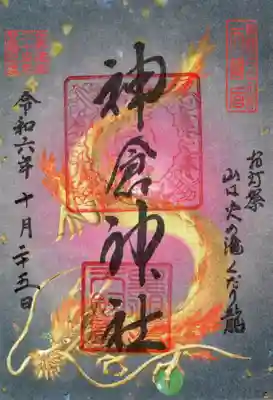 お灯祭
山は火の滝くだり龍
神倉神社
令和六年十月二十五日